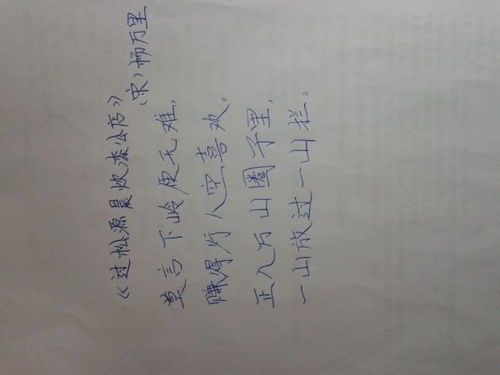 《过松源晨炊漆公店》
(宋)杨万里
莫言下岭便无难,
赚得行人空喜欢。
正入万山圈子里,
一山放过一山拦。